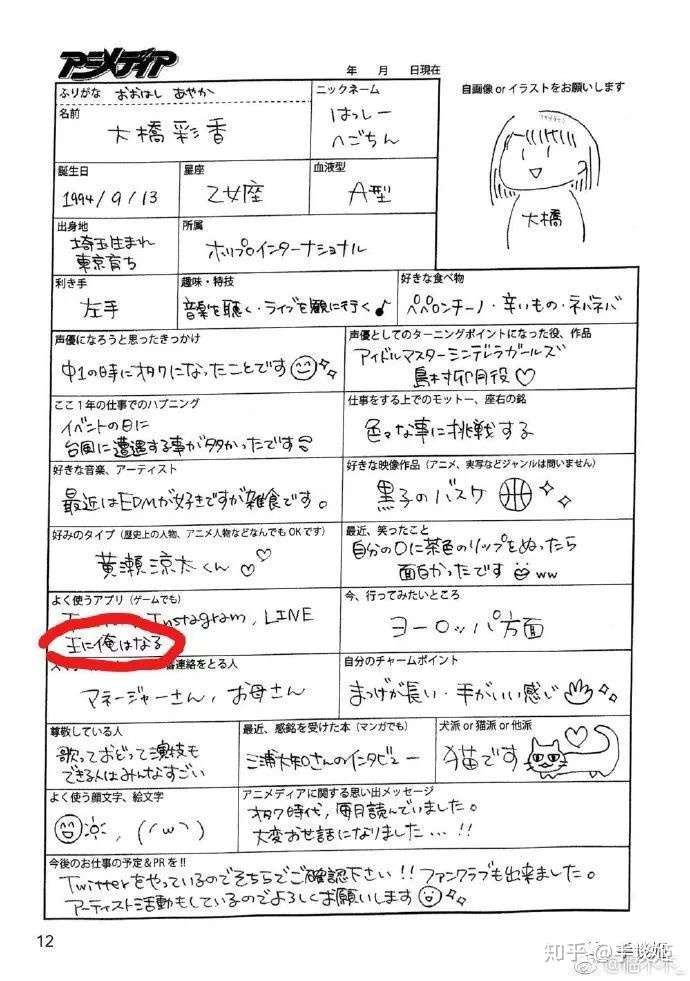 アニメディア
年 月 日現在
ふりがな おおはし あやか
名前
大橋彩香
ニックネーム
はっしー
へごちん
自画像 or イラストをお願いします
大橋
誕生日
1994/9/13
星座
乙女座
血液型
A型
出身地
埼玉生まれ
東京育ち
所属
ホリプロインターナショナル
利き手
左手
趣味・特技
音楽を聴く・ライブを観に行く♪
好きな食べ物
ペペロンチーノ・辛いもの・ネバネバ
声優になろうと思ったきっかけ
中1の時にオタクになったことです
声優としてのターニングポイントになった役、作品
アイドルマスターシンデレラガールズ
島村卯月役♡
ここ1年の仕事でのハプニング
イベントの日に
台風に遭遇する事が多かったです
仕事をする上でのモットー、座右の銘
色々な事に挑戦する
好きな音楽、アーティスト
最近はEDMが好きですが雑食です。
好きな映像作品(アニメ、実写などジャンルは問いません)
黒子のバスケ
好みのタイプ(歴史上の人物、アニメ人物などなんでもOKです)
黄瀬涼太くん♡
最近、笑ったこと
自分の〇に茶色のリップをぬったら
面白かったです ww
よく使うアプリ(ゲームでも)
Instagram, LINE
王に俺はなる
今、行ってみたいところ
ヨーロッパ方面
番連絡をとる人
マネージャーさん, お母さん
自分のチャームポイント
まつげが長い・手がいい感じ
尊敬している人
歌っておどって演技も
できる人はみんなすごい
最近、感銘を受けた本(マンガでも)
三浦大知さんのインタビュー
犬派 or 猫派 or 他派
猫です
よく使う顔文字、絵文字
, (・ω・)
アニメディアに関する思い出メッセージ
オタク時代, 毎月読んでいました。
大変お世話になりました…!!
今後のお仕事の予定&PRを!!
Twitterをやっているのでそちらでご確認下さい!! ファンクラブも出来ました。
アーティスト活動もしているのでよろしくお願いします
12
知乎